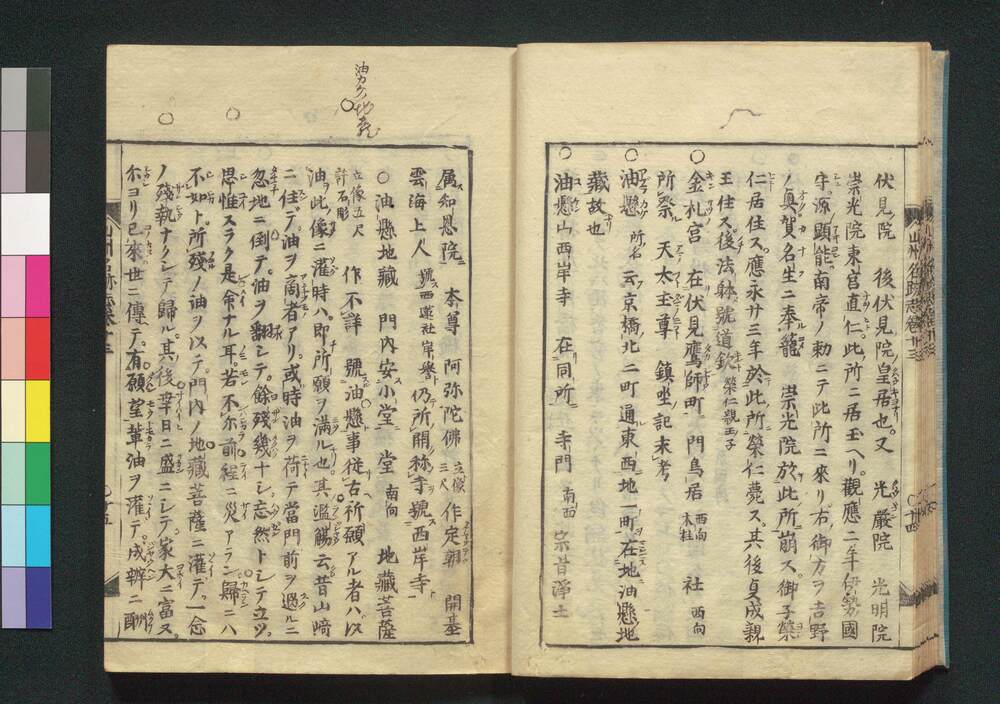 伏見院　後伏見院皇居也。又　光厳院　光明院
崇光院東宮直仁。此所ニ居玉ヘリ。觀應二年伊勢國
守。源ノ顯能南帝ノ勅ニテ此所ニ來リ右ノ御方ヲ吉野
ノ奥賀名生ニ奉籠　崇光院於此所崩ス。御子榮
仁居住ス。應永廿三年於此所榮仁薨ス。其後貞成親
王住ス。後法躰號道欽 榮仁親王子
○金札宮　在伏見鷹師町ニ　門鳥居 西向木柱　社 西向
所祭　天太玉尊　鎮坐記未考
○油懸 所名 云京橋ノ北二町通東西ノ地一町。在地油懸地
藏故也
○油懸山西岸寺　在同所ニ　寺門 南面　宗昔淨土
屬知恩院ニ　本尊　阿弥陀佛 立像三尺 作定朝　開基
雲海上人 號西蓮社岸譽 仍所開称寺號西岸寺ト
○油懸地藏　門内安小堂ニ　堂 南向　地藏菩薩
立像五尺計石彫　作不詳　號油懸事從古祈願アル者ハ以
油ヲ此像ニ灌時ハ。即所願ヲ滿ル也其濫觴云昔山崎
ニ住デ。油ヲ商者アリ。或時油ヲ荷テ當門前ヲ過ルニ
忽地ニ倒テ。油ヲ翻シテ。餘残幾十シ忘然トシテ立ツ。
思惟スラク是命ナル耳若不尓前程ニ災アラン歸ニハ
不如ト。所殘ノ油ヲ以テ。門内ノ地藏菩薩ニ灌デ。一念
ノ殘執ナクシテ歸ル。其ノ後畢日ニ盛ニシテ。家大ニ富ス。
尓ヨリ已來世ニ傳テ。有願望輩油ヲ灌テ。成辨ニ酬
油カケ地蔵
山州名跡志巻十三